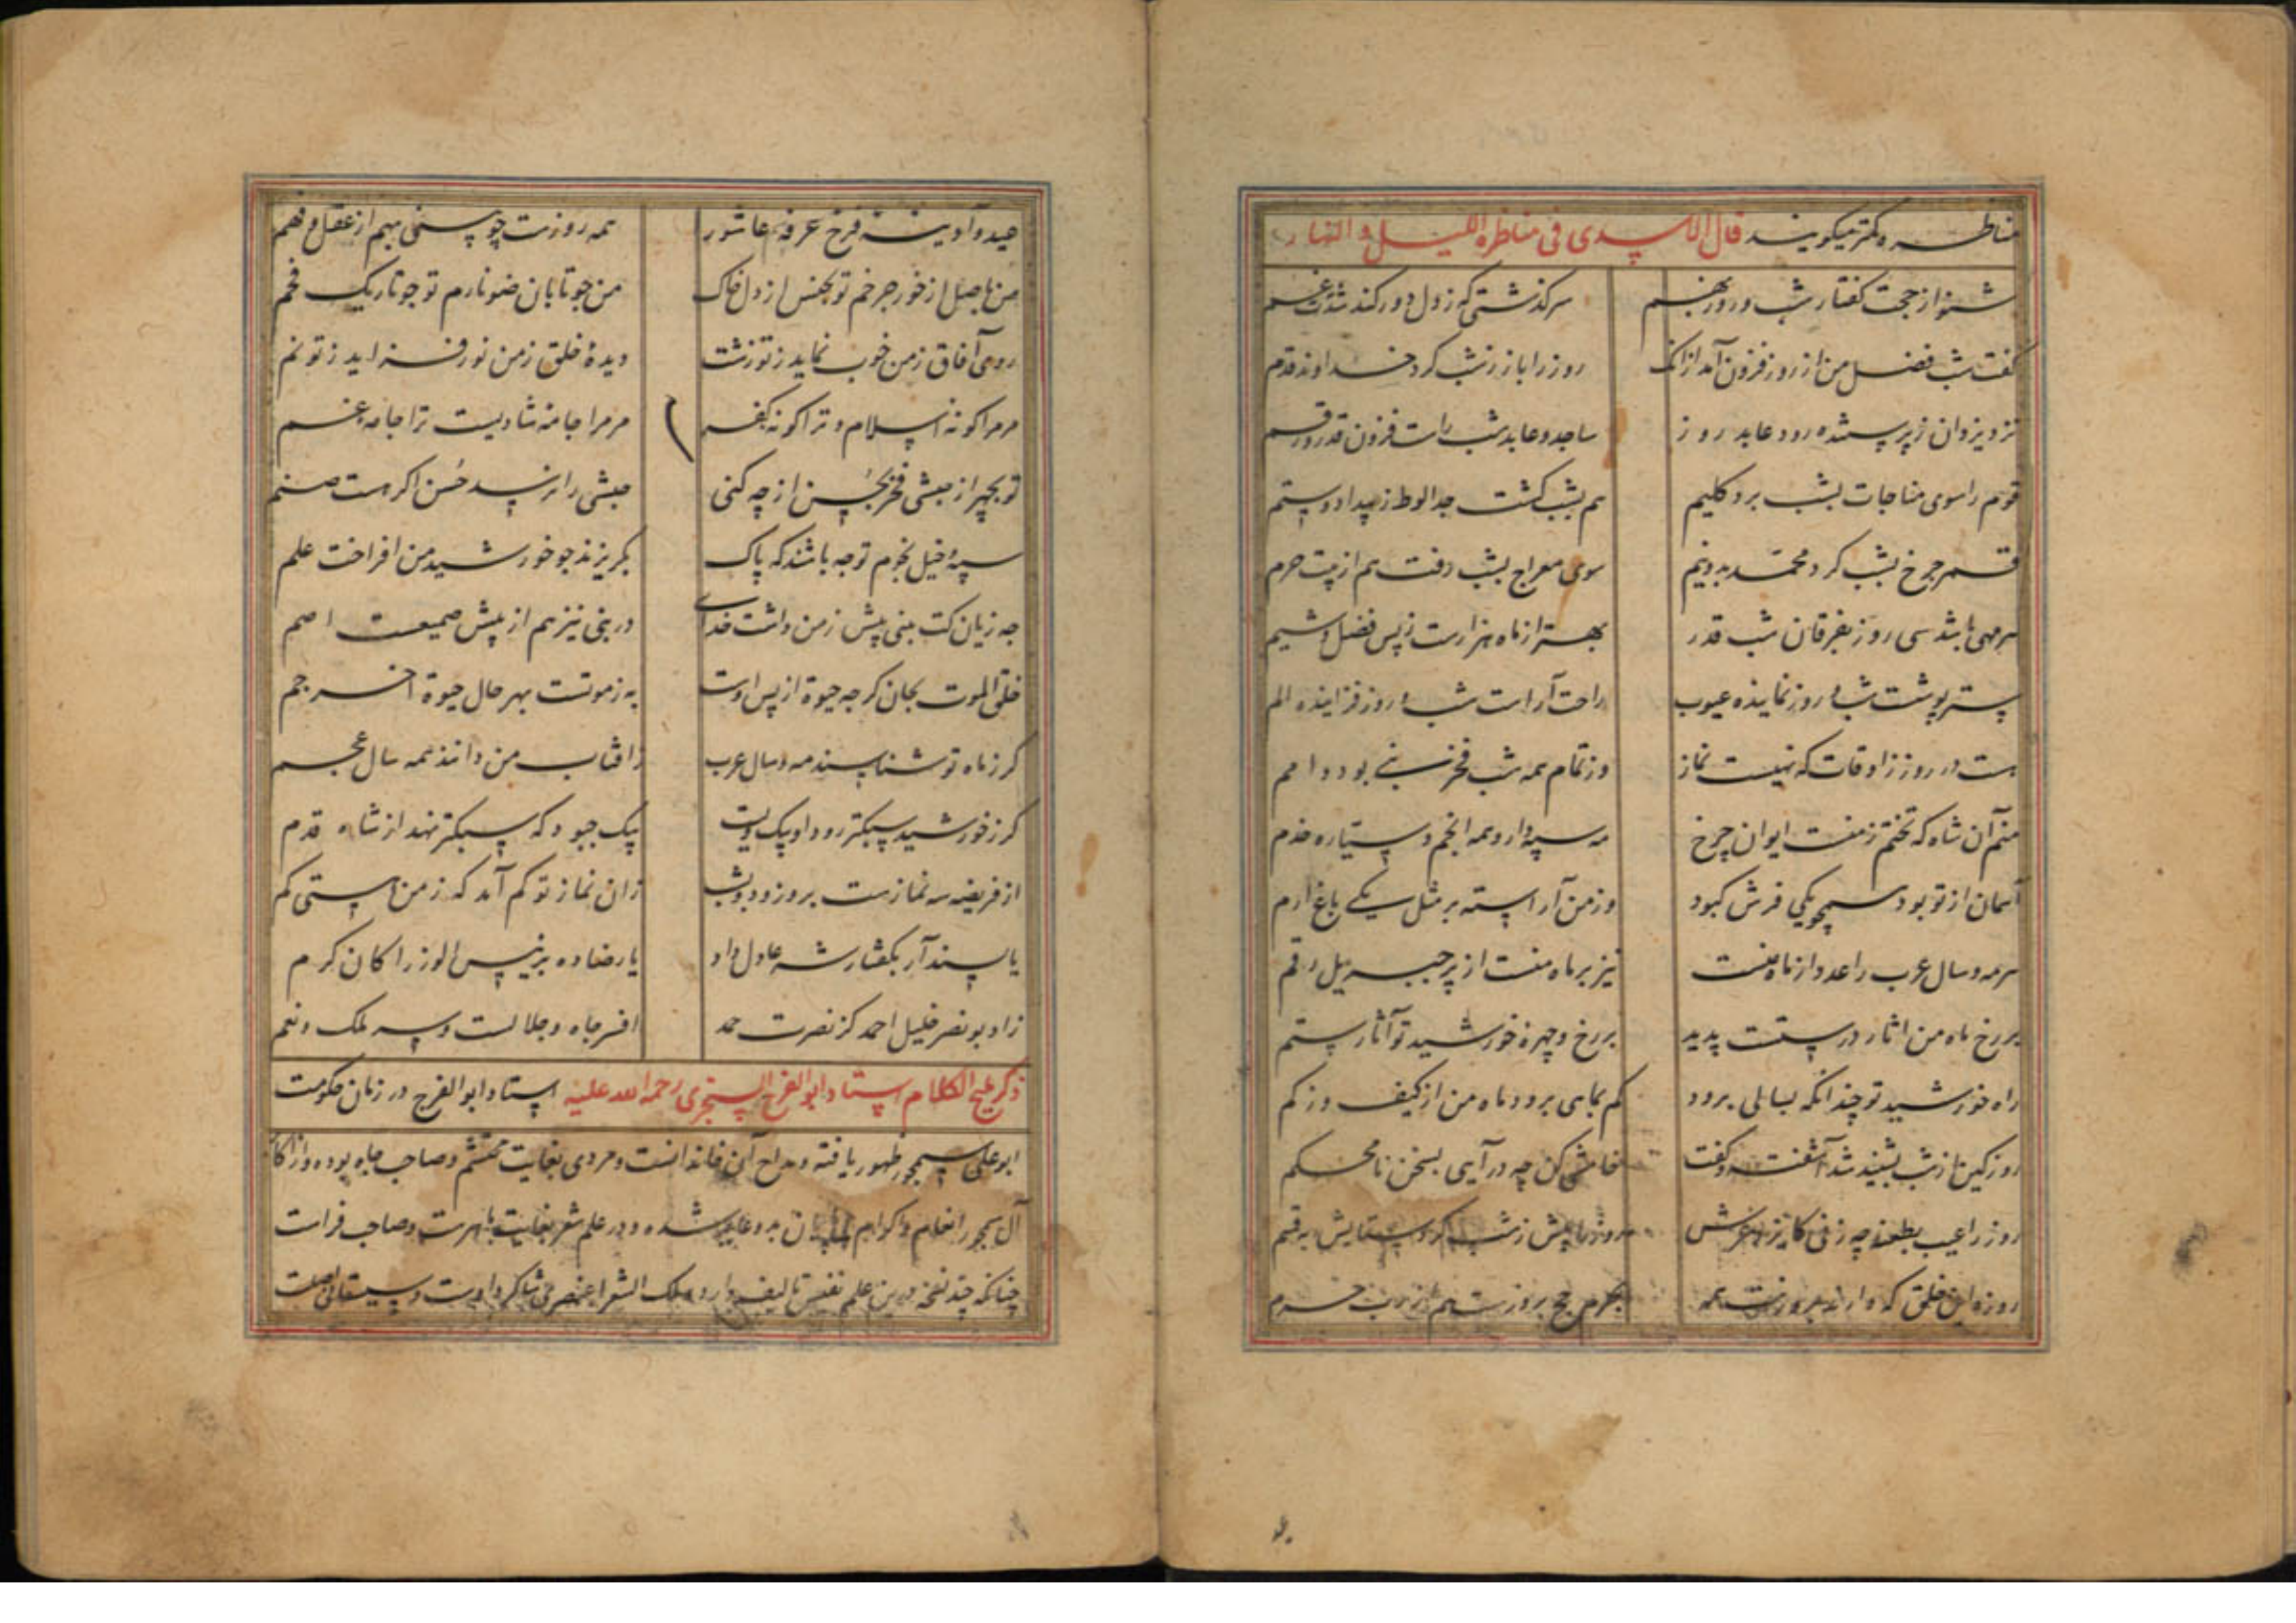 مناظره کمتر میکویند قال الاسدی فی مناظرة اللیل و النهار
بشنو از حجت کفتار شب و روز بهم سرکذشتی که ز دل دور کند شدت غم
کفت شب فضل من از روز فزون آمد ازانک روز را باز ز شب کرد خداوند قدم
نزد یزدان ز پرستنده رود عابد روز ساجد و عابد شب راست فزون قدر و رقم
قوم را سوی مناجات بشب برد کلیم هم بشب کشت جدا لوط ز بیداد و ستم
قمر چرخ بشب کرد محمد بدو نیم سوی معراج بشب رفت هم از بیت حرم
هر مهی باشد سی روز بفرقان شب قدر بهتر از ماه هزارست ز بس فضل و شیم
ستر پوشست شب و روز نماینده عیوب راحت آراست شب و روز فزاینده الم
هست در روز ز اوقات که نهیست نماز وز تمام همه شب فخر نبی بود و امم
منم آن شاه که تختم ز منست ایوان چرخ مه سپهدار و همه انجم و سیاره خدم
آسمان از تو بود همچو یکی فرش کبود وز من آراسته بر مثل یکی باغ ارم
هر مه و سال عرب را عدد از ماه منست نیز بر ماه منست از پر جبریل رقم
بر رخ ماه من اثار درستست پدید بر رخ و چهره خورشید تو آثار ستم
راه خورشید تو چندانکه بسالی برود کم بماهی برود ماه من از کیف و ز کم
روز کین از شب بشنید شد آشفته و کفت خامشی کن چه درآیی بسخن نامحکم
روز را عیب بطعنه چه زنی کایزد عرش روز را پیش ز شب کرد ستایش بقسم
روزه این خلق که دارند بروزست همه بحرم حج بروزست هم از رب حرم
عید و آدینه فرخ عرفه عاشور همه روزست چو بینی بهم از عقل و فهم
من باصل از خور چرخم تو بجنس از دل خاک من چو تابان ضو نارم تو چو تاریک فحم
روی آفاق ز من خوب نماید ز تو زشت دیدهٔ خلق ز من نور فزاید ز تو نم
مر مرا کونه اسلام و ترا کونه کفر مر مرا جامه شادیست ترا جامه غم
تو بچهر از حبشی فخر بحسن از چه کنی حبشی را نرسد حُسن اکر هست صنم
سپه و خیل نجوم تو چه باشند که پاک بکریزند چو خورشید من افراخت علم
چه زیان کت بنبی پیش ز من داشت خدای در نبی نیز هم از پیش سمیعست اصم
خلق الموت بخوان کرچه حیوة از پس اوست به ز موتست بهر حال حیوة اخر جم
کر ز ماه تو شناسند مه و سال عرب ز آفتاب من دانند همه سال عجم
کر ز خورشید سبکتر رود او پیک ویست پیک چبود که سبکتر نهد از شاه قدم
از فریضه سه نمازست بروز و دو بشب زان نماز تو کم آمد که ز من هستی کم
یا پسند آر بکفتار شه عادل داد یا رضا ده برئیس الوزرا کان کرم
زاد بو نصر خلیل احمد کز نصرت حمد افسر جاه و جلالست و سه ملک و نعم
ذکر ملیح الکلام استاد ابوالفرج السنجری رحمة الله علیه استاد ابوالفرج در زمان حکومت
ابو علی سیمجور ظهور یافته و مداح آن خاندانست و مردی بغایت محتشم و صاحب جاه بوده و از اکا
آل سیمجور را انعام و اکرام بدو عاید شده و در علم شعر بغایت ماهرست و صاحب فراست
چنانکه چند نسخه درین علم نفیس تالیف دارد و ملک الشعرا عنصری شاکرد اوست و سیستانی اصلست